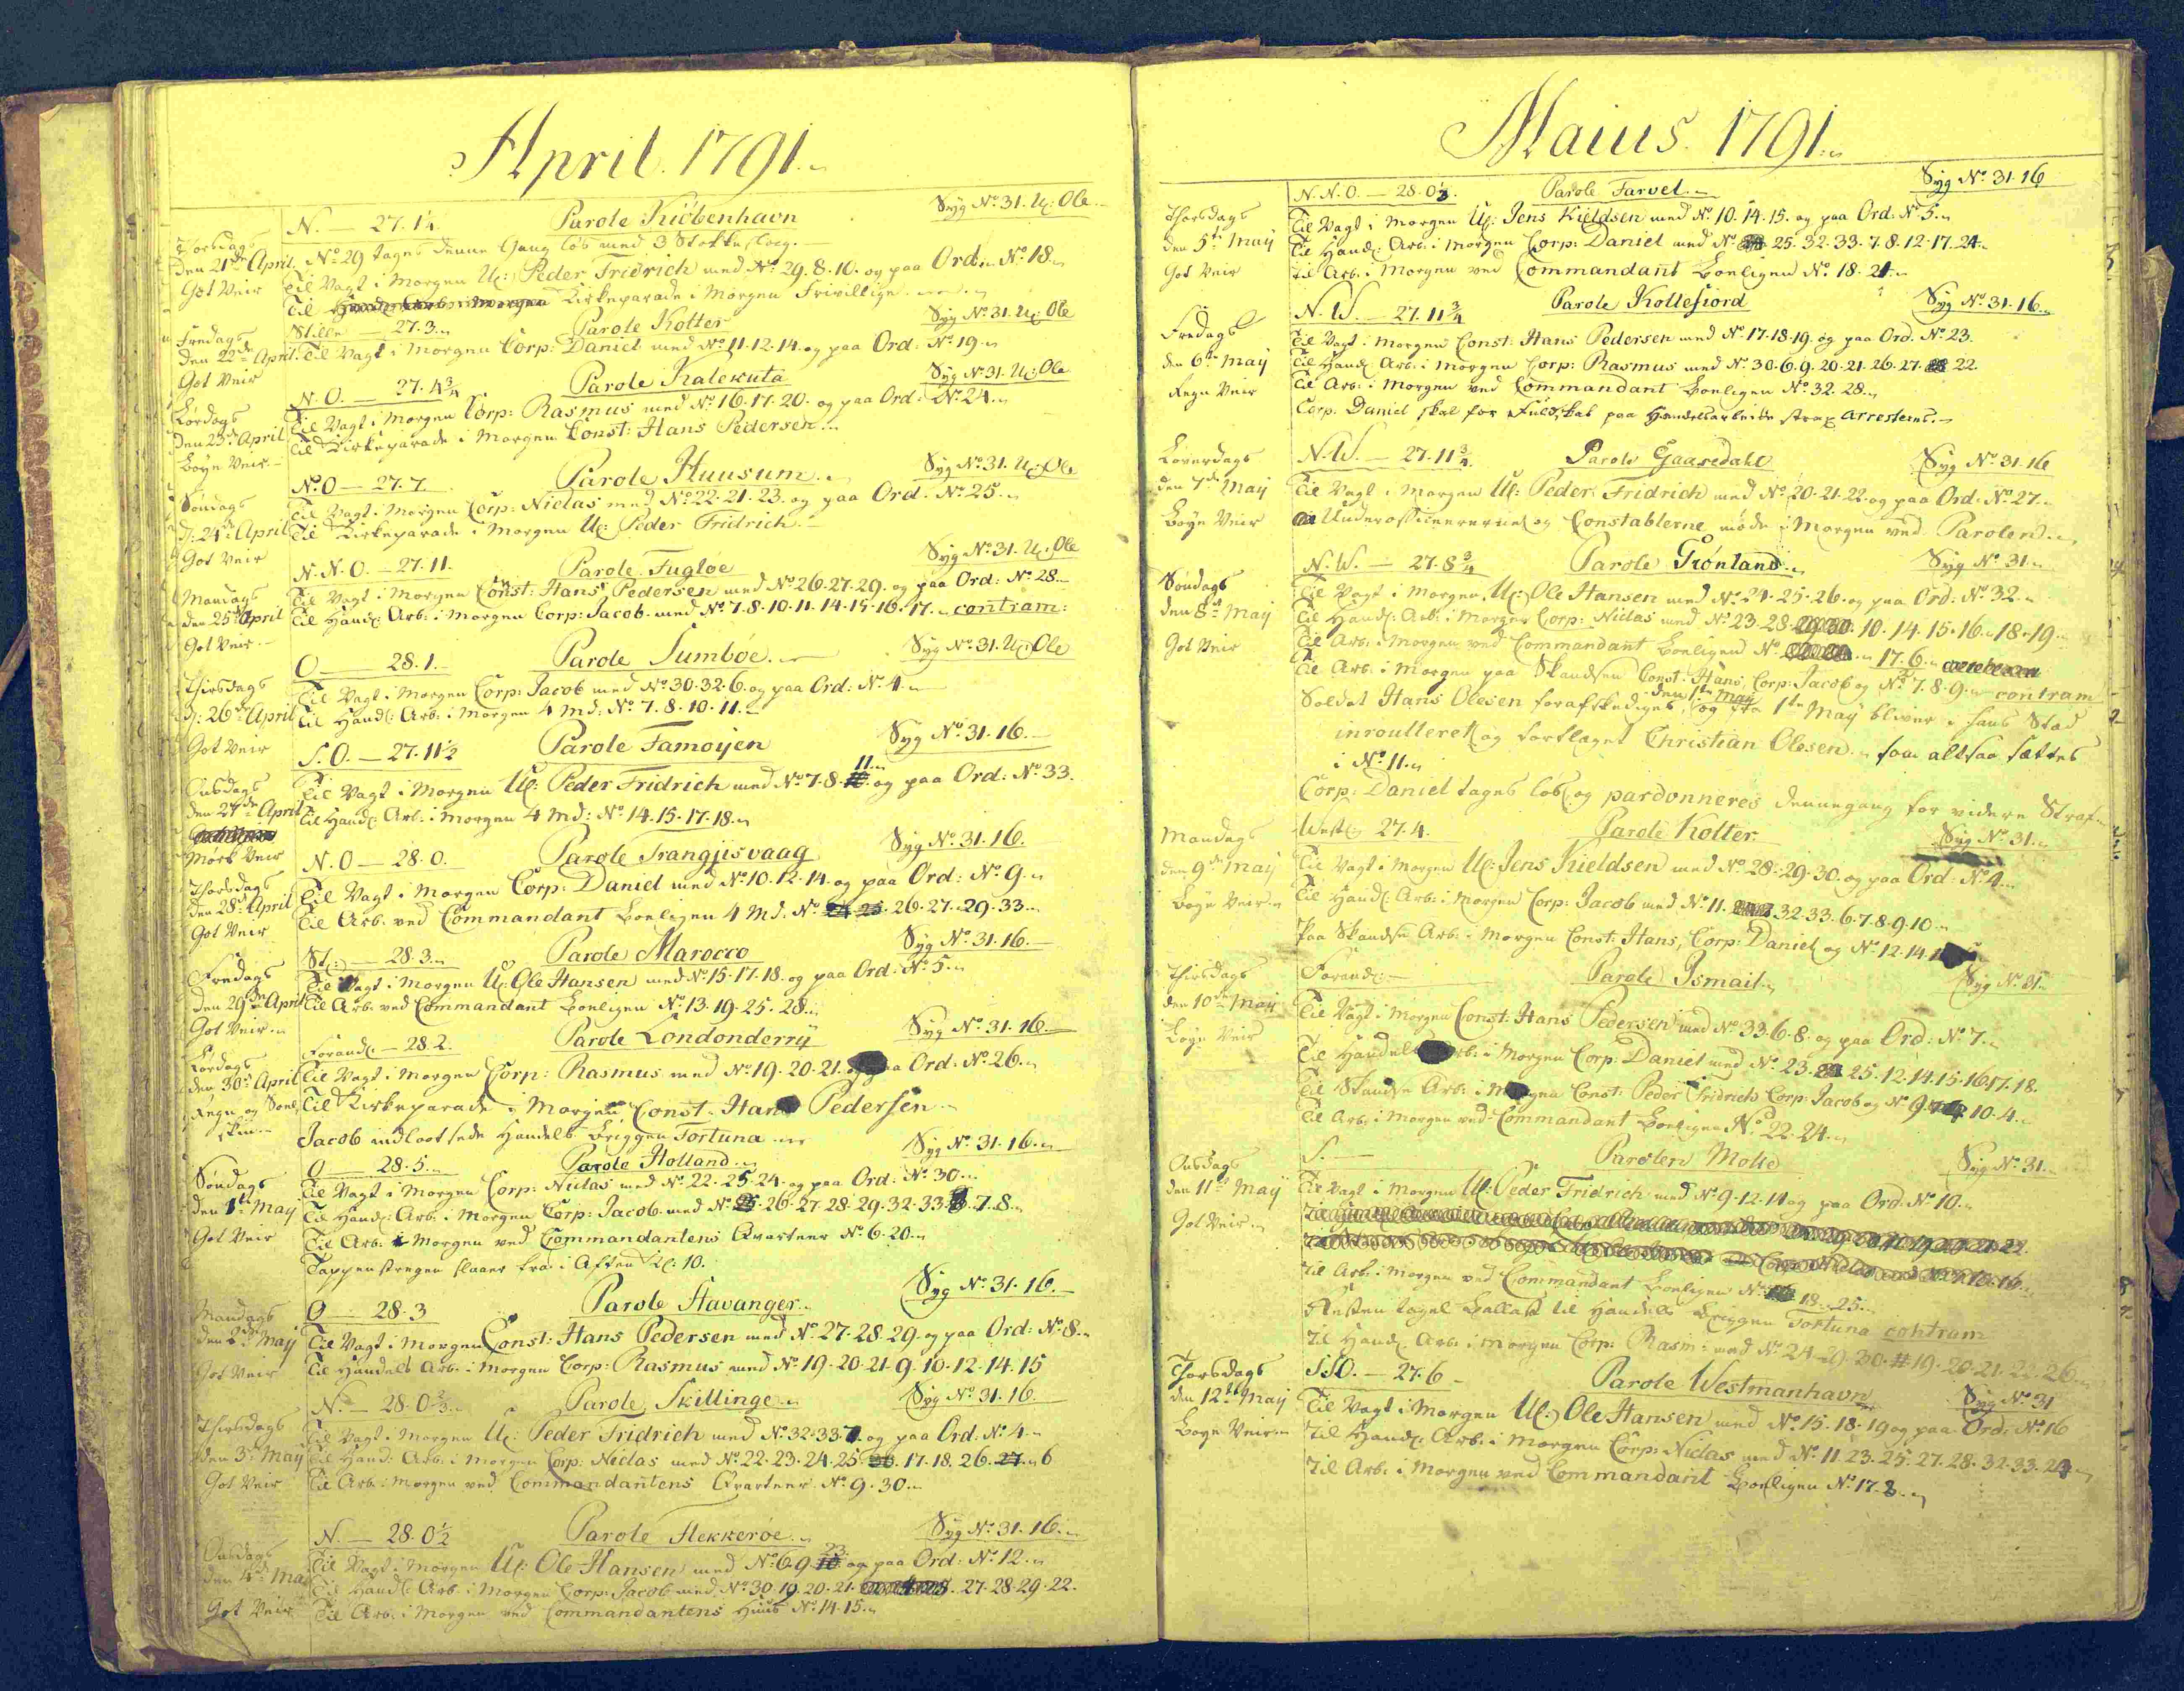 April. 1791.
N. — 27. 1¼. Parole Kiöbenhavn Syg No. 31. U: Ole
Torsdags
den 21de April.
Got Veir
No. 29 tages denne Gang løs med 3 Stokke slag.
Til Vagt i Morgen U: Peder Fridrich med No. 29. 8. 10. og paa Ord: No. 18.
Til Kirkeparade i Morgen Frivillige
Stille — 27. 3. Parole Kolter Syg No. 31. U: Ole
Fredags
den 22de April.
Got Veir
Til Vagt i Morgen Corp: Daniel med No. 11. 12. 14. og paa Ord: No. 19.
N. O. — 27. 4¾ Parole Kalekuta Syg No. 31. U: Ole
Lørdags
den 23de April
Bøye Veir
Til Vagt i Morgen Corp: Rasmus med No. 16. 17. 20. og paa Ord: No. 24.
Til Kirkeparade i Morgen Const: Hans Pedersen
N. O — 27. 7. Parole Huusum Syg No. 31. U: Ole
Søndags
d: 24de April
Got Veir
Til Vagt i Morgen Corp: Niclas med No. 22. 21. 23. og paa Ord: No. 25.
Til Kirkeparade i Morgen U: Peder Fridrich.
N. N. O. — 27. 11. Parole Fugløe Syg No. 31. U: Ole
Mandags
den 25de April
Got Veir
Til Vagt i Morgen Const: Hans Pedersen med No. 26. 27. 29. og paa Ord: No. 28.
Til Handl: Arb: i Morgen Corp: Jacob med No. 7. 8. 10. 11. 14. 15. 16. 17. contram:
O — 28. 1. Parole Sumböe. Syg No. 31. U: Ole
Thirsdags
d: 26de April
Got Veir
Til Vagt i Morgen Corp: Jacob med No. 30. 32. 6. og paa Ord: No. 4.
Til Handl: Arb: i Morgen 4 Md: No. 7. 8. 10. 11.
S. O. — 27. 11½ Parole Famøyen Syg No. 31. 16.
Onsdags
den 27de April
Mørk Veir
Til Vagt i Morgen U: Peder Fridrich med No. 7. 8. 11. og paa Ord: No. 33.
Til Handl: Arb: i Morgen 4 Md: No. 14. 15. 17. 18.
N. O — 28. 0. Parole Trangjisvaag Syg No. 31. 16.
Thorsdags
den 28de April
Got Veir
Til Vagt i Morgen Corp: Daniel med No. 10. 12. 14. og paa Ord: No. 9.
Til Arb: ved Commandant Boeligen 4 Md. No. 24 25. 26. 27. 29. 33.
St: — 28. 3. Parole Marocco Syg No. 31. 16.
Fredags
den 29de April
Got Veir
Til Vagt i Morgen U: Ole Hansen med No. 15. 17. 18. og paa Ord: No. 5.
Til Arb: ved Commandant Boeligen No. 13. 19. 25. 28.
Forandl: — 28. 2. Parole Londonderrÿ Syg No. 31. 16.
Lørdags
den 30de April
Regn og Soel
skin
Til Vagt i Morgen Corp: Rasmus med No. 19. 20. 21. og paa Ord: No. 26.
Til Kirkeparade i Morgen Const. Hans Pedersen
Jacob indlootsede Handels Briggen Fortuna
O — 28. 5. Parole Holland. Syg No. 31. 16.
Søndags
den 1te Maÿ
Got Veir
Til Vagt i Morgen Corp: Niclas med No. 22. 25. 24. og paa Ord: No. 30.
Til Handl: Arb: i Morgen Corp: Jacob med No. 26. 27. 28. 29. 32. 33. 7. 8.
Til Arb: i Morgen ved Commandantens Qvarteer No. 6. 20.
Tappenstregen slaaes fra i Aften Kl: 10.
O — 28. 3 Parole Havanger Syg No. 31. 16.
Mandags
den 2de Maÿ
Got Veir
Til Vagt i Morgen Const: Hans Pedersen med No. 27. 28. 29. og paa Ord: No. 8.
Til Handels Arb: i Morgen Corp: Rasmus med No. 19. 20. 21. 9. 10. 12. 14. 15
N. — 28. 0⅔ Parole Skillinge Syg No. 31. 16.
Thirsdags
den 3de Maÿ
Got Veir
Til Vagt i Morgen U: Peder Fridrich med No. 32. 33. 7. og paa Ord: No. 4.
Til Handl: Arb: i Morgen Corp: Niclas med No. 22. 23. 24. 25. 17. 18. 26. 27. 6
Til Arb: i Morgen ved Commandantens Qvarteer No. 9. 30.
N. — 28. 0½ Parole Flekkerøe Syg No. 31. 16.
Onsdags
den 4de Maÿ
Got Veir
Til Vagt i Morgen U: Ole Hansen med No. 6. 9. 23. og paa Ord: No. 12.
Til Handl: Arb: i Morgen Corp: Jacob med No. 30. 19. 20. 21. 27. 28. 29. 22.
Til Arb: i Morgen ved Commandantens Huus No. 14. 15.
Maius. 1791.
N. N. O. — 28. 0½. Parole Farvel. Syg No. 31. 16
Thorsdags
den 5te Maÿ
Got Veir
Til Vagt i Morgen U: Jens Kieldsen med No. 10. 14. 15. og paa Ord: No. 5.
Til Handl: Arb: i Morgen Corp: Daniel med No. 25. 32. 33. 7. 8. 12. 17. 24.
Til Arb. i Morgen ved Commandant Boeligen No. 18. 21.
N. W. — 27. 11¾ Parole Kollefiord Syg No. 31. 16.
Fredags
den 6te Maÿ
Regn Veir
Til Vagt i Morgen Const: Hans Pedersen med No. 17. 18. 19. og paa Ord. No. 23.
Til Handl: Arb: i Morgen Corp: Rasmus med No. 30. 6. 9. 20. 21. 26. 27. 22.
Til Arb: i Morgen ved Commandant Boeligen No. 32. 28.
Corp: Daniel skal for Fuldskab paa Handelsarbeide strax arresteres.
N. W. — 27. 11¾. Parole Gaasedahl Syg No. 31. 16
Løverdags
den 7de Maÿ
Bøye Veir
Til Vagt i Morgen U: Peder Fridrich med No. 20. 21. 22. og paa Ord: No. 27.
Underofficererne og Constablerne møde i Morgen ved Parolen.
N. W. — 27. 8¾ Parole Grønland Syg No. 31.
Søndags
den 8de Maÿ
Got Veir
Til Vagt i Morgen U: Ole Hansen med No. 24. 25. 26. og paa Ord: No. 32.
Til Handl: Arb: i Morgen Corp: Niclas med No. 23. 28. 29. 30. 10. 14. 15. 16. 18. 19.
Til Arb: i Morgen ved Commandant Boeligen No. 17. 6.
Til Arb: i Morgen paa Skandsen Const: Hans, Corp: Jacob og No. 7. 8. 9. contram
Soldat Hans Olesen forafskediges den 1te Maÿ, og fra 1te Maÿ bliver i hans Stad
inroulleret og antaget Christian Olesen. som altsaa sættes
i No. 11.
Corp: Daniel tages løs og pardonneres dennegang for videre Straf
Westl: 27. 4. Parole Kolter. Syg No. 31.
Mandags
den 9de Maÿ
Bøye Veir
Til Vagt i Morgen U: Jens Kieldsen med No. 28. 29. 30. og paa Ord: No. 4.
Til Handl: Arb: i Morgen Corp: Jacob med No. 11. 32. 33. 6. 7. 8. 9. 10.
Paa Skandse Arb: i Morgen Const: Hans, Corp: Daniel og No. 12. 14.
Forandl: — Parole Ismail. Syg No. 31.
Thirsdags
den 10de Maÿ
Bøye Veir
Til Vagt i Morgen Const: Hans Pedersen med No. 33. 6. 8. og paa Ord: No. 7.
Til Handels Arb: i Morgen Corp: Daniel med No. 23. 25. 12. 14. 15. 16. 17. 18.
Til Skandse Arb: i Morgen Const: Peder Fridrich Corp: Jacob og No. 9. 10. 4.
Til Arb: i Morgen ved Commandant Boeligen No. 22. 24.
S. — Parolen Molle Syg No. 31.
Onsdags
den 11te Maÿ
Got Veir
Til Vagt i Morgen U: Peder Fridrich med No. 9. 12. 14 og paa Ord. No. 10.
Til Arb: i Morgen ved Commandant Boeligen No. 18. 25.
Resten tages Ballast til Handels Briggen Fortuna contram
Til Handl: Arb: i Morgen Corp: Rasm: med No. 24. 29. 30. 19. 20. 21. 22. 26
SSO. — 27. 6 Parole Westmanhavn Syg No. 31
Thorsdags
den 12te Maÿ
Bøye Veir
Til Vagt i Morgen U: Ole Hansen med No. 15. 18. 19 og paa Ord: No. 16
Til Handl: Arb: i Morgen Corp: Niclas med No. 11. 23. 25. 27. 28. 32. 33. 24
Til Arb: i Morgen ved Commandant Boeligen No. 17. 8.